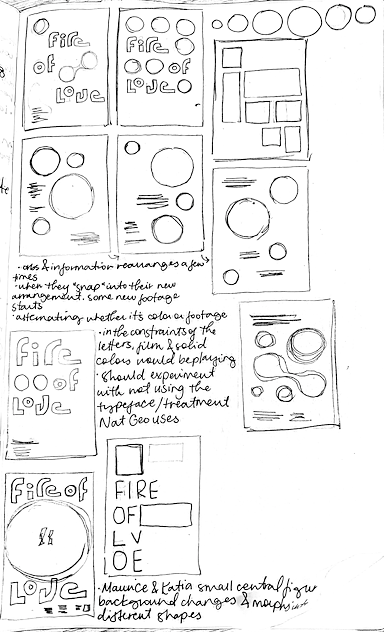 FIRE
OF
LOVE
FIRE
OF
LOVE
· orbs & information rearranges a few
times
· when they "snap" into their new
arrangement. some new footage
starts
· alternating whether its color or footage
· in the constraints of the
letters, film & solid
colors would be playing
· Should experiment
with not using the
typeface/treatment
Nat Geo uses
FIRE
OF
LOVE
FIRE OF
LOVE
FIRE
OF
LV
OE
· Maurice & Katia small central figure
background changes & morphs
different shapes